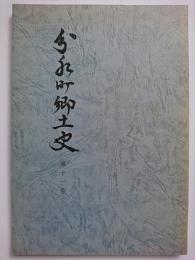 分水町郷土史
第十一集